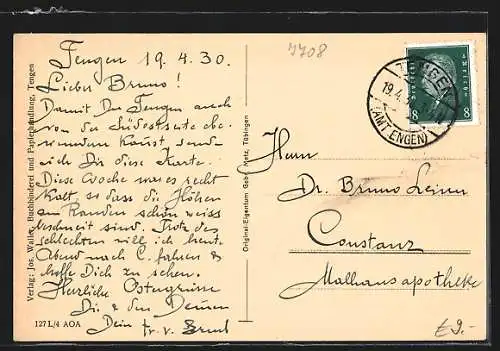 Tengen 19.4.30.
Lieber Bruno!
Damit Du Tengen auch
von der Südostseite be-
wundern kannst, send
ich Dir diese Karte.
Diese Woche war es recht
kalt, so dass die Höhen
am Randen schon weiss
beschneit sind. Trotz des
schlechten will ich heut
Abend nach C. fahren &
hoffe Dich zu sehen.
Herzliche Ostergrüsse
Dir & den Deinen
Dein
127 L/4 AOA
Verlag: Jos. Walter, Buchbinderei und Papierhandlung, Tengen
Original-Eigentum Gebr. Metz, Tübingen
7708
TENGEN
19.4.3
(AMT ENGEN)
Deutsches Reich
8 8
Herrn
Dr. Bruno Leiner
Constanz
Malhausapotheke
£9.-